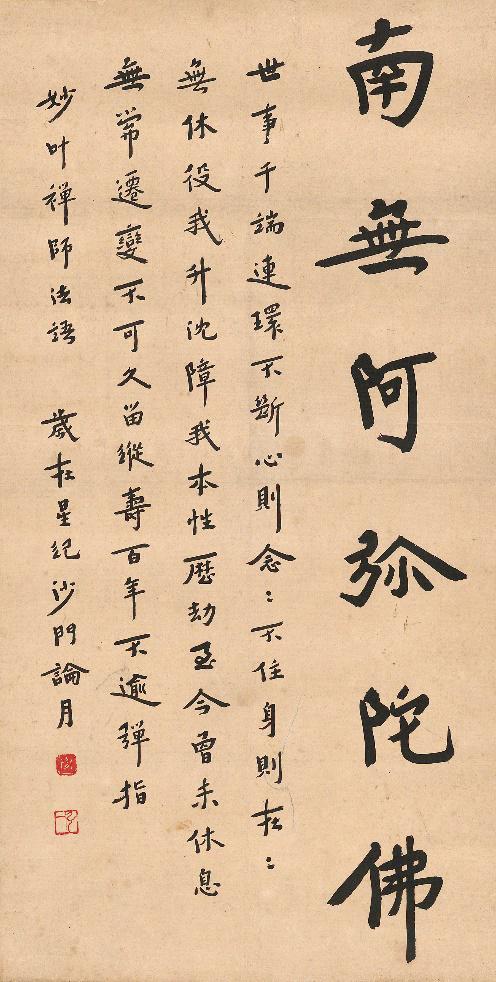 南無阿弥陀佛
世事千端連環不断心則念〻不住身則在〻
無休役我升沈障我本性歷劫至今曾未休息
無常遷變不可久留縱壽百年不逾彈指
妙叶禪師法語 歲在星紀沙門論月